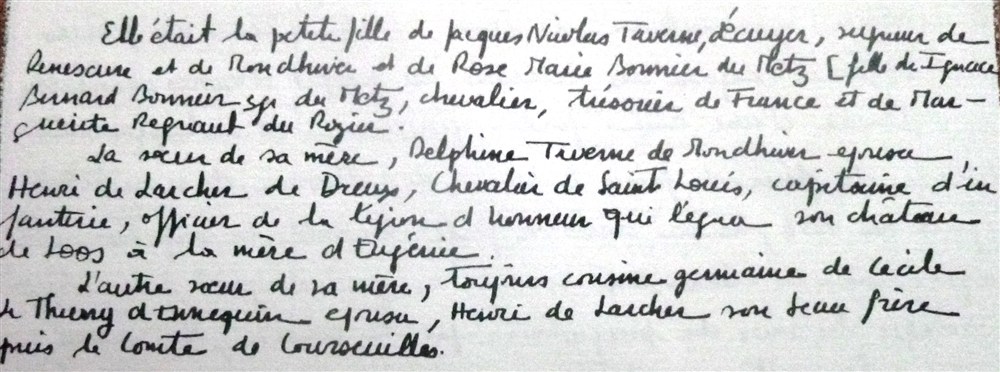 Elle était la petite fille de Jacques Nicolas Taverne, écuyer, seigneur de
Renescure et de Mondhiver et de Rose Marie Bonnier du Metz [fille de Ignace
Bernard Bonnier sgr du Metz, chevalier, trésorier de France et de Mar-
guerite Regnaut du Rozier.
La sœur de sa mère, Delphine Taverne de Mondhiver epousa,
Henri de Larcher de Dreux, Chevalier de Saint Louis, capitaine d'in
fanterie, officier de la légion d'honneur qui légua son château
de Loos à la mère d'Eugénie.
L'autre sœur de sa mère, toujours cousine germaine de Cécile
de Thieny d'Ennequin epousa, Henri de Larcher son beau frère
puis le Comte de Courseulles.